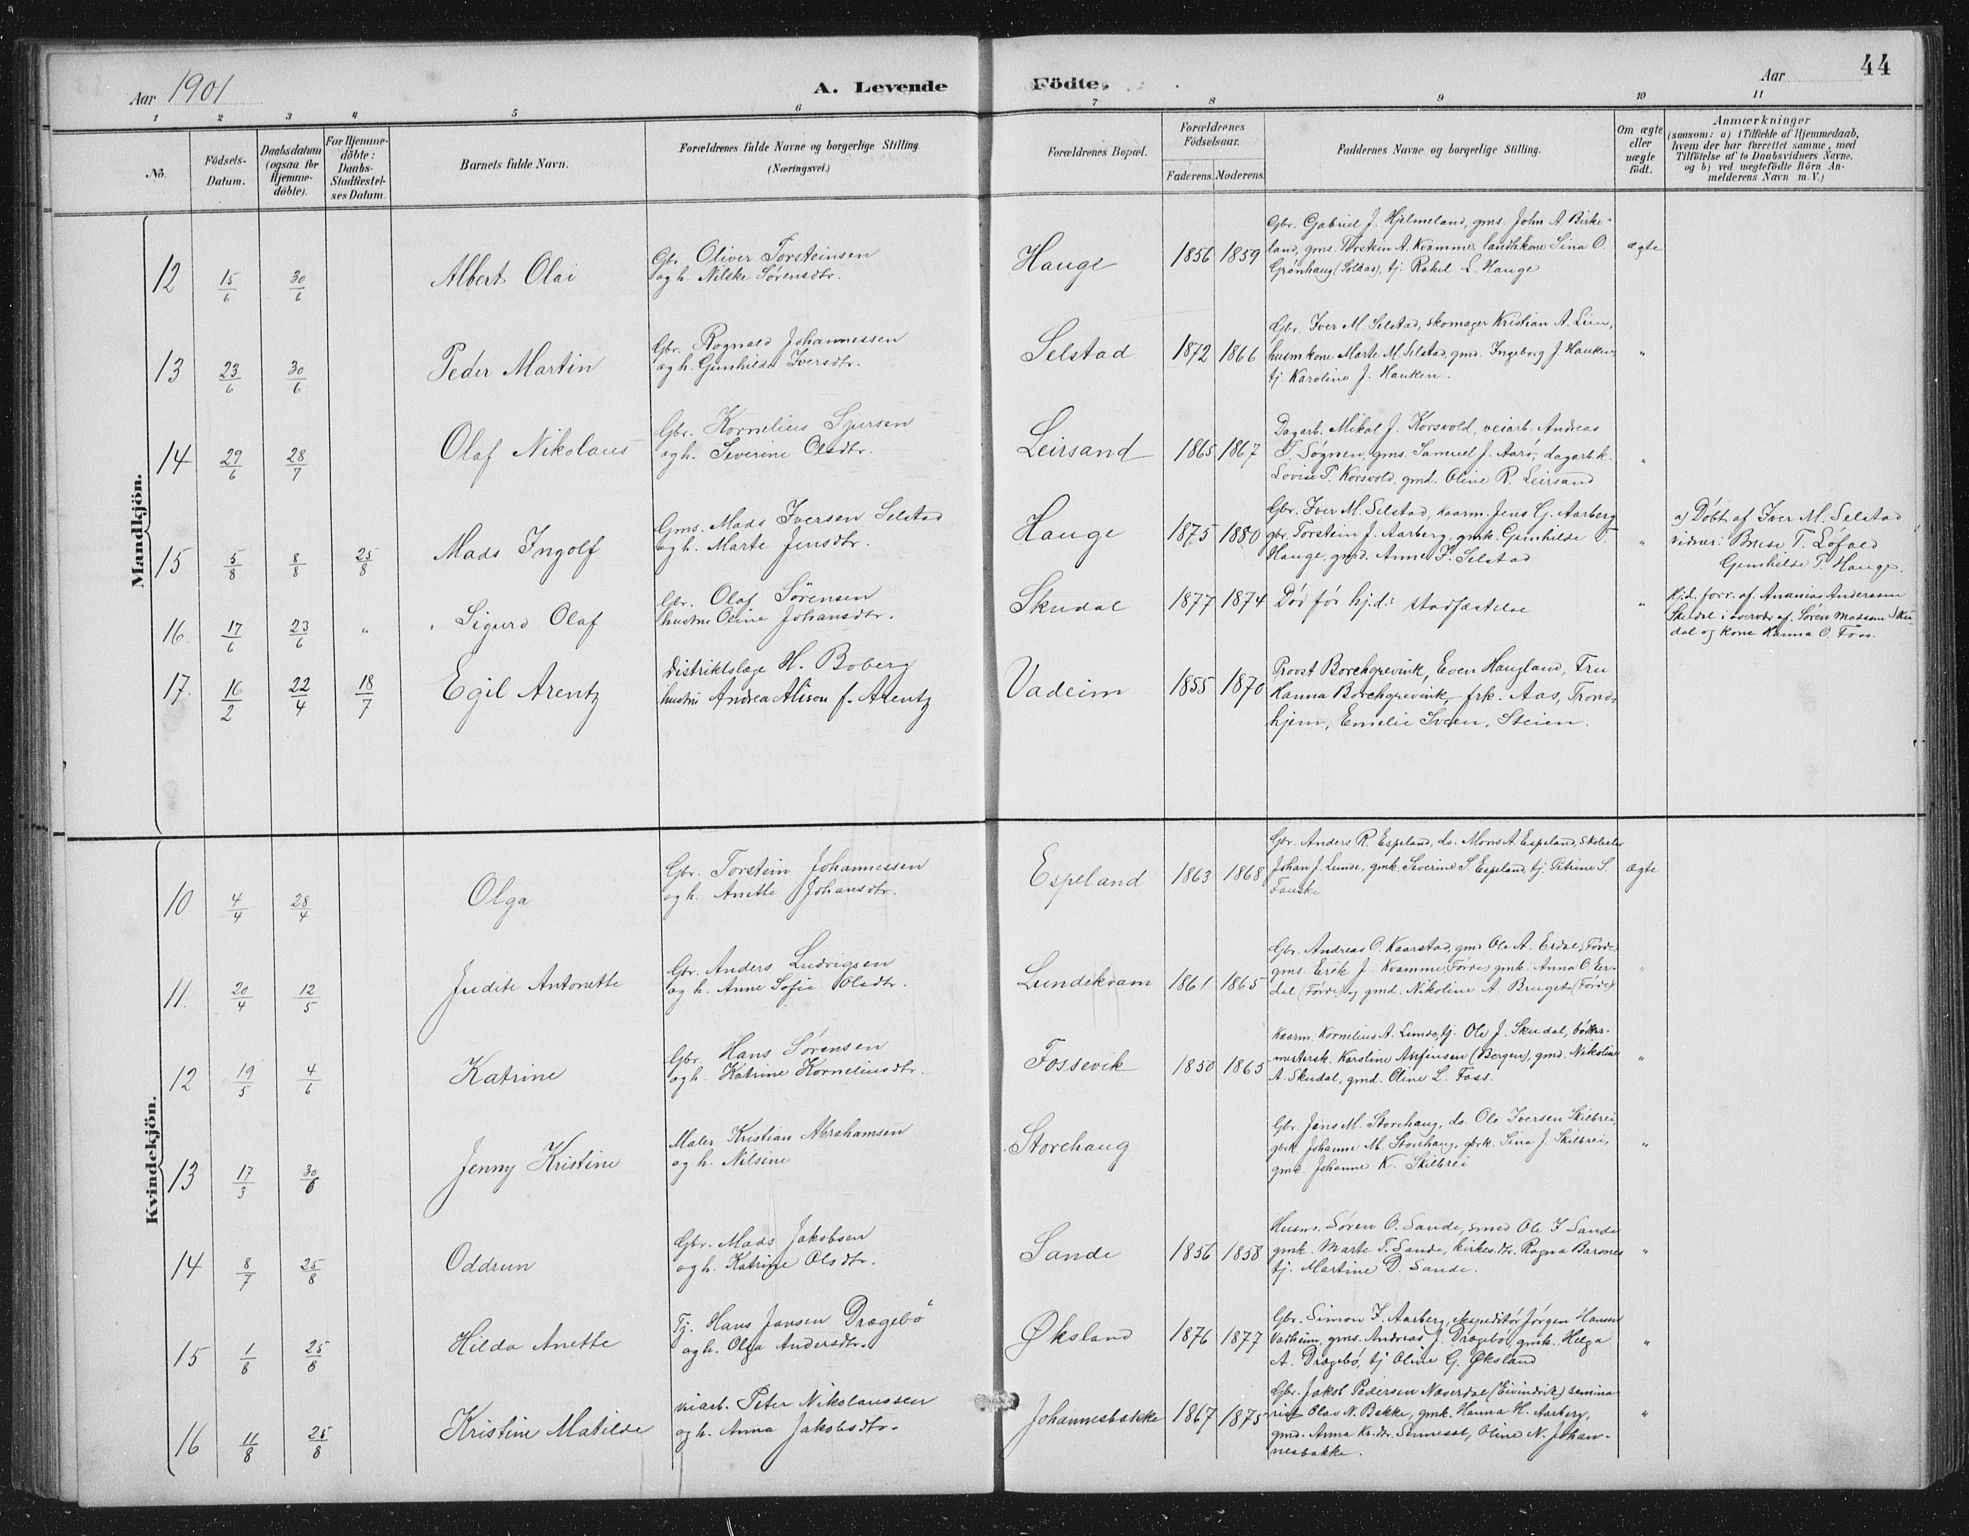 Aar 1901
A. Levende Födte.
Aar
44
1 2 3 4 5 6 7 8 9 10 11
No.
Födsels-Datum.
Daabsdatum (ogsaa for Hjemme-döbte).
For Hjemme-döbte: Daabs-Stadfæstel-ses Datum.
Barnets fulde Navn.
Forældrenes fulde Navne og borgerlige Stilling.
(Næringsvei.)
Forældrenes Bopæl.
Forældrenes Födselsaar.
Faderens. Moderens.
Faddernes Navne og borgerlige Stilling.
Om ægte eller uægte födt.
Anmærkninger
(saasom: a) i Tilfælde af Hjemmedaab, hvem der har forrettet samme, med Tilföielse af to Daabsvidners Navne, og b) ved uægtefödte Börn An-melderens Navn m. V.)
Mandkjön.
12 15/6 30/6 Albert Olai
Gbr. Oliver Torsteinsen
og h. Nilske Sørensdtr.
Hauge 1856 1859
Gbr. Gabriel J. Hjelmeland, gms. John A. Birke-
land, gms. Torstein A. Kvamme, landhkone Sina O.
Grønhaug (Solhas), tj. Rakel L. Hauge
ægte
13 23/6 30/6 Peder Martin
Gbr. Rognald Johannessen
og h. Gunhilda Iversdtr.
Selstad 1872 1866
Gbr. Iver M. Selstad, skomager Kristian A. Lein,
husmkone Marte M. Selstad, gmd. Ingeborg J. Hauken,
tj. Karoline J. Hauken.
"
14 29/6 28/7 Olaf Nikolaus
Gbr. Kornelius Sjursen
og h. Severine Olsdtr.
Leirsand 1865 1867
Dagarb. Mikal J. Korsvold, veiarb. Andreas
S. Søgnen, gms. Samuel J. Aarø, dagarb.k.
Lovise P. Korsvold, gmd. Oline R. Leirsand
"
15 5/8 8/8 25/8 Mads Ingolf
Gms. Mads Iversen Selstad
og h. Marte Jensdtr.
Hauge 1875 1880
Gbr. Iver M. Selstad, kaarm. Jens G. Aarberg
gbr. Torstein J. Aarberg, gmk. Gunhilde T
Hauge, gmd. Anne P. Selstad
"
a) Døbt af Iver M. Selstad
vidner: Brese T. Løfald
Gunhilde T. Hauge.
16 17/6 23/6 " Sigurd Olaf
Gbr. Olaf Sørensen
hustru Oline Johansdtr.
Skudal 1877 1874
Død før hj.d.s stadfæstelse
"
Hj.d. forr. af Ananias Andersen
Skildal i overvær af Søren Madssen Sku-
dal og kone Hanna O. Foss.
17. 16/2 22/4 18/7 Egil Arentz
Distriktslæge H. Boberg
hustru Andrea Alison f. Arentz
Vadeim 1855 1870
Provst Borchgrevink, Even Haugland, Fru
Hanna Borchgrevink, frk. Aas, Trond-
hjem, Emelie Sven, Steien.
Kvindekjön.
10 4/4 28/4 Olga
Gbr. Torstein Johannessen
og h. Anette Johansdtr.
Espeland 1863 1868
Gbr. Anders R. Espeland, do. Mons A. Espeland, skoholer
Johan J. Lunde, gmk. Severine S. Espeland, tj. Petrine S.
Fauske
ægte
11. 20/4 12/5 Judite Antonette
Gbr. Anders Ludvigsen
og h. Anne Sofie Olsdtr.
Lundekvam 1861 1865
Gbr. Andreas O. Kaarstad, gmd Ole A. Erdal (Førde)
gms. Erik J. Kvamme (Førde) gmk. Anna O. Er-
dal (Førde) og gmd. Nikoline A. Bruget (Førde)
"
12 19/5 4/6 Katrine
Gbr. Hans Sørensen
og h. Katrine Korneliusdtr.
Fossevik 1850 1865
Kaarm. Kornelius A. Lunde, tj. Ole J. Skudal, bøtker-
mestersk. Karoline Anfinsen (Bergen), gmd. Nikoline
A. Skudal, gmd. Oline L. Foss.
"
13 17/3 30/6 Jenny Kristine
Maler Kristian Abrahamsen
og h. Nilsine
Storehaug
Gbr. Jens M. Storehaug, do. Ole Iversen Skilbrei,
gbrk. Johanne M. Storehaug, gbrk. Sina J. Skilbrei,
gmd. Johanne K. Skilbrei
"
14 8/7 25/8 Oddrun
Gbr. Mads Jakobsen
og h. Katrine Olsdtr.
Sande 1856 1858
Husm. Søren O. Sande, smed Ole I Sande
gmk. Marte T. Sande, kirkes.dtr. Ragna Barones
tj. Martine D. Sande.
"
15 1/8 25/8 Hilda Anette
Tj. Hans Jansen Drægebø
og h. Olga Andersdtr.
Øksland 1876 1877
Gbr. Simon F. Aarberg, ekspeditør Jørgen Hansen
Vadheim, gms. Andreas J. Drægebø, gmk. Helga
A. Drægebø, tj Oline G. Øksland
"
16 11/8 25/8 Kristine Matilde
veiarb. Peter Nikolaussen
og h. Anna Jakobsdtr.
Johannesbakke 1867 1875
Gbr. Jakob Pedersen Næverdal (Eivindvik) semina-
rist Olav N. Bakke, gmk. Hanna H. Aarberg,
gmd. Anna Kr.dtr. Sunneset, Oline N. Johan-
nesbakke.
"